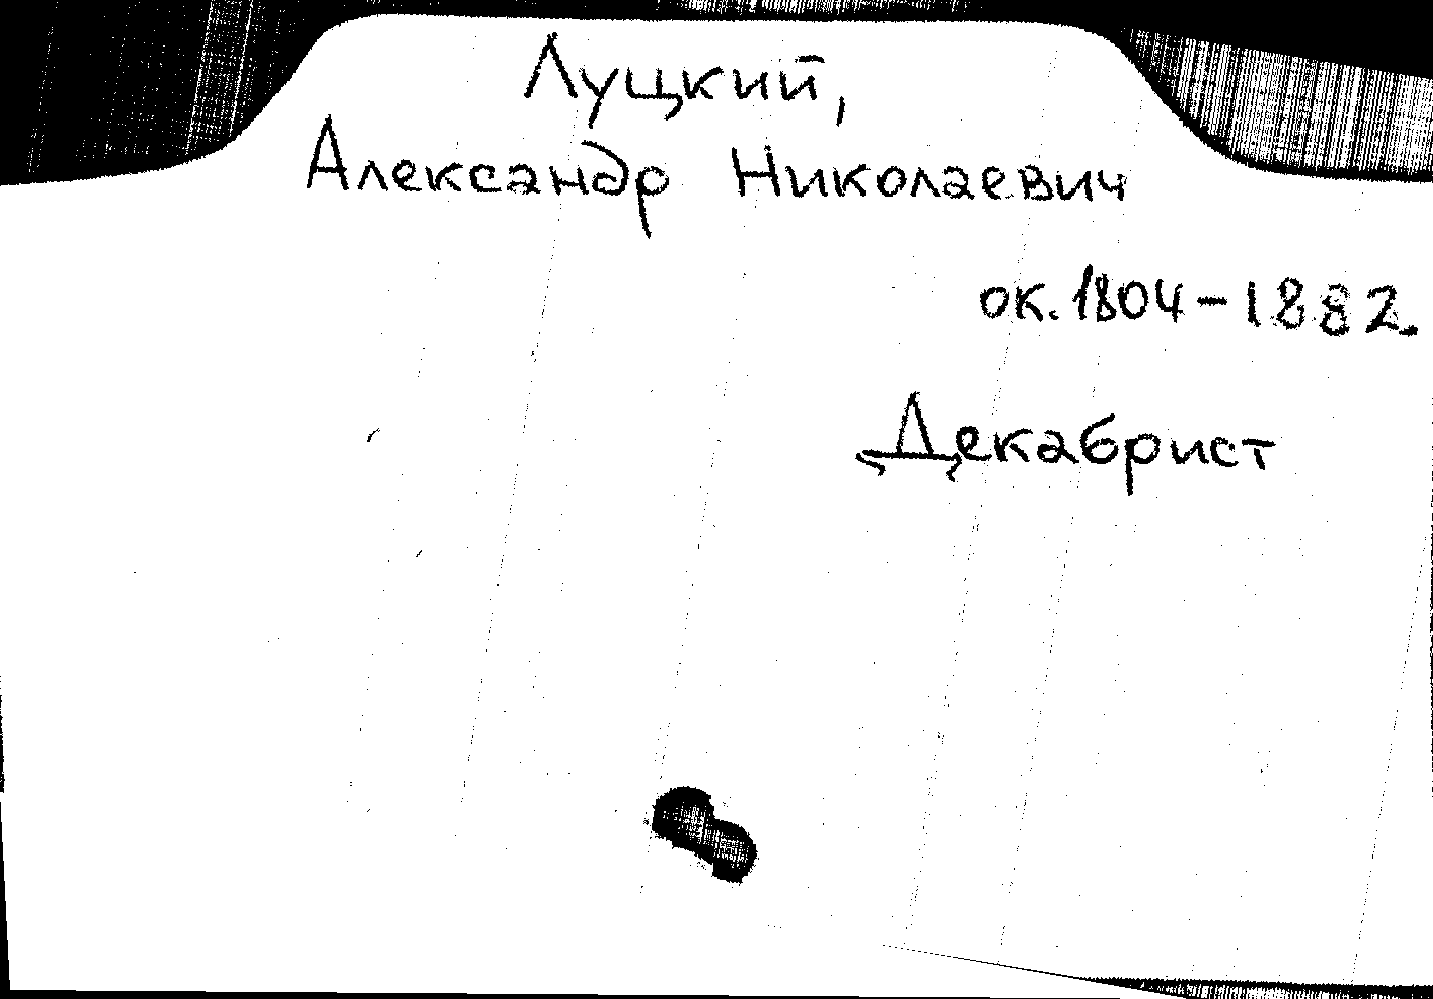 Луцкий,
Александр Николаевич
ок. 1804-1882.
Декабрист